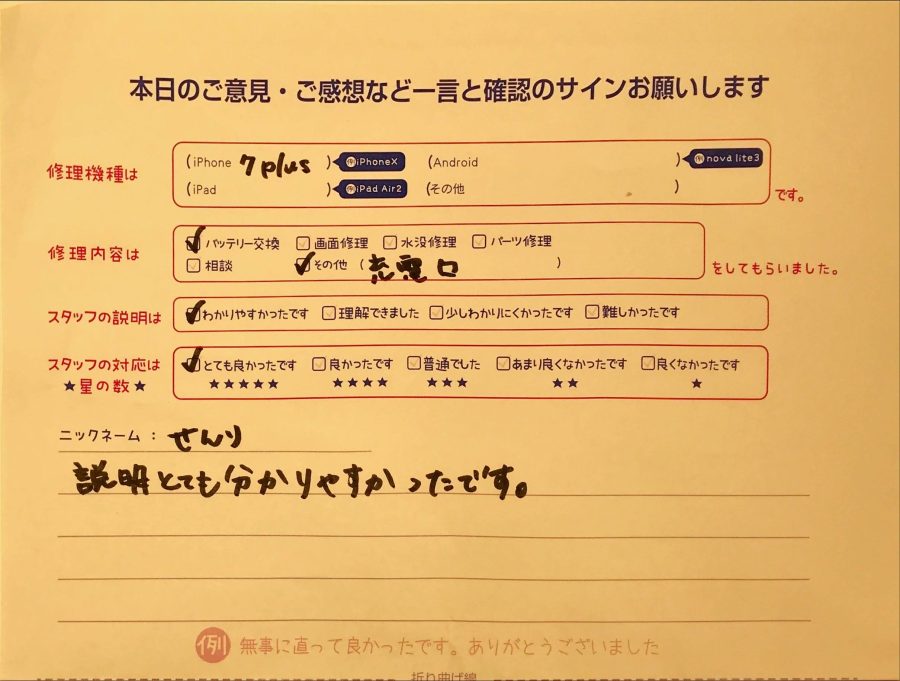 本日のご意見・ご感想など一言と確認のサインお願いします
修理機種は (iPhone 7 plus ) 例iPhoneX (Android ) 例nova lite3
(iPad ) 例iPad Air2 (その他 ) です。
修理内容は バッテリー交換 画面修理 水没修理 パーツ修理
相談 その他 ( 充電口 ) をしてもらいました。
スタッフの説明は わかりやすかったです 理解できました 少しわかりにくかったです 難しかったです
スタッフの対応は とても良かったです 良かったです 普通でした あまり良くなかったです 良くなかったです
★星の数★ ★★★★★ ★★★★ ★★★ ★★ ★
ニックネーム : せんり
説明とても分かりやすかったです。
例 無事に直って良かったです。ありがとうございました
折り曲げ線